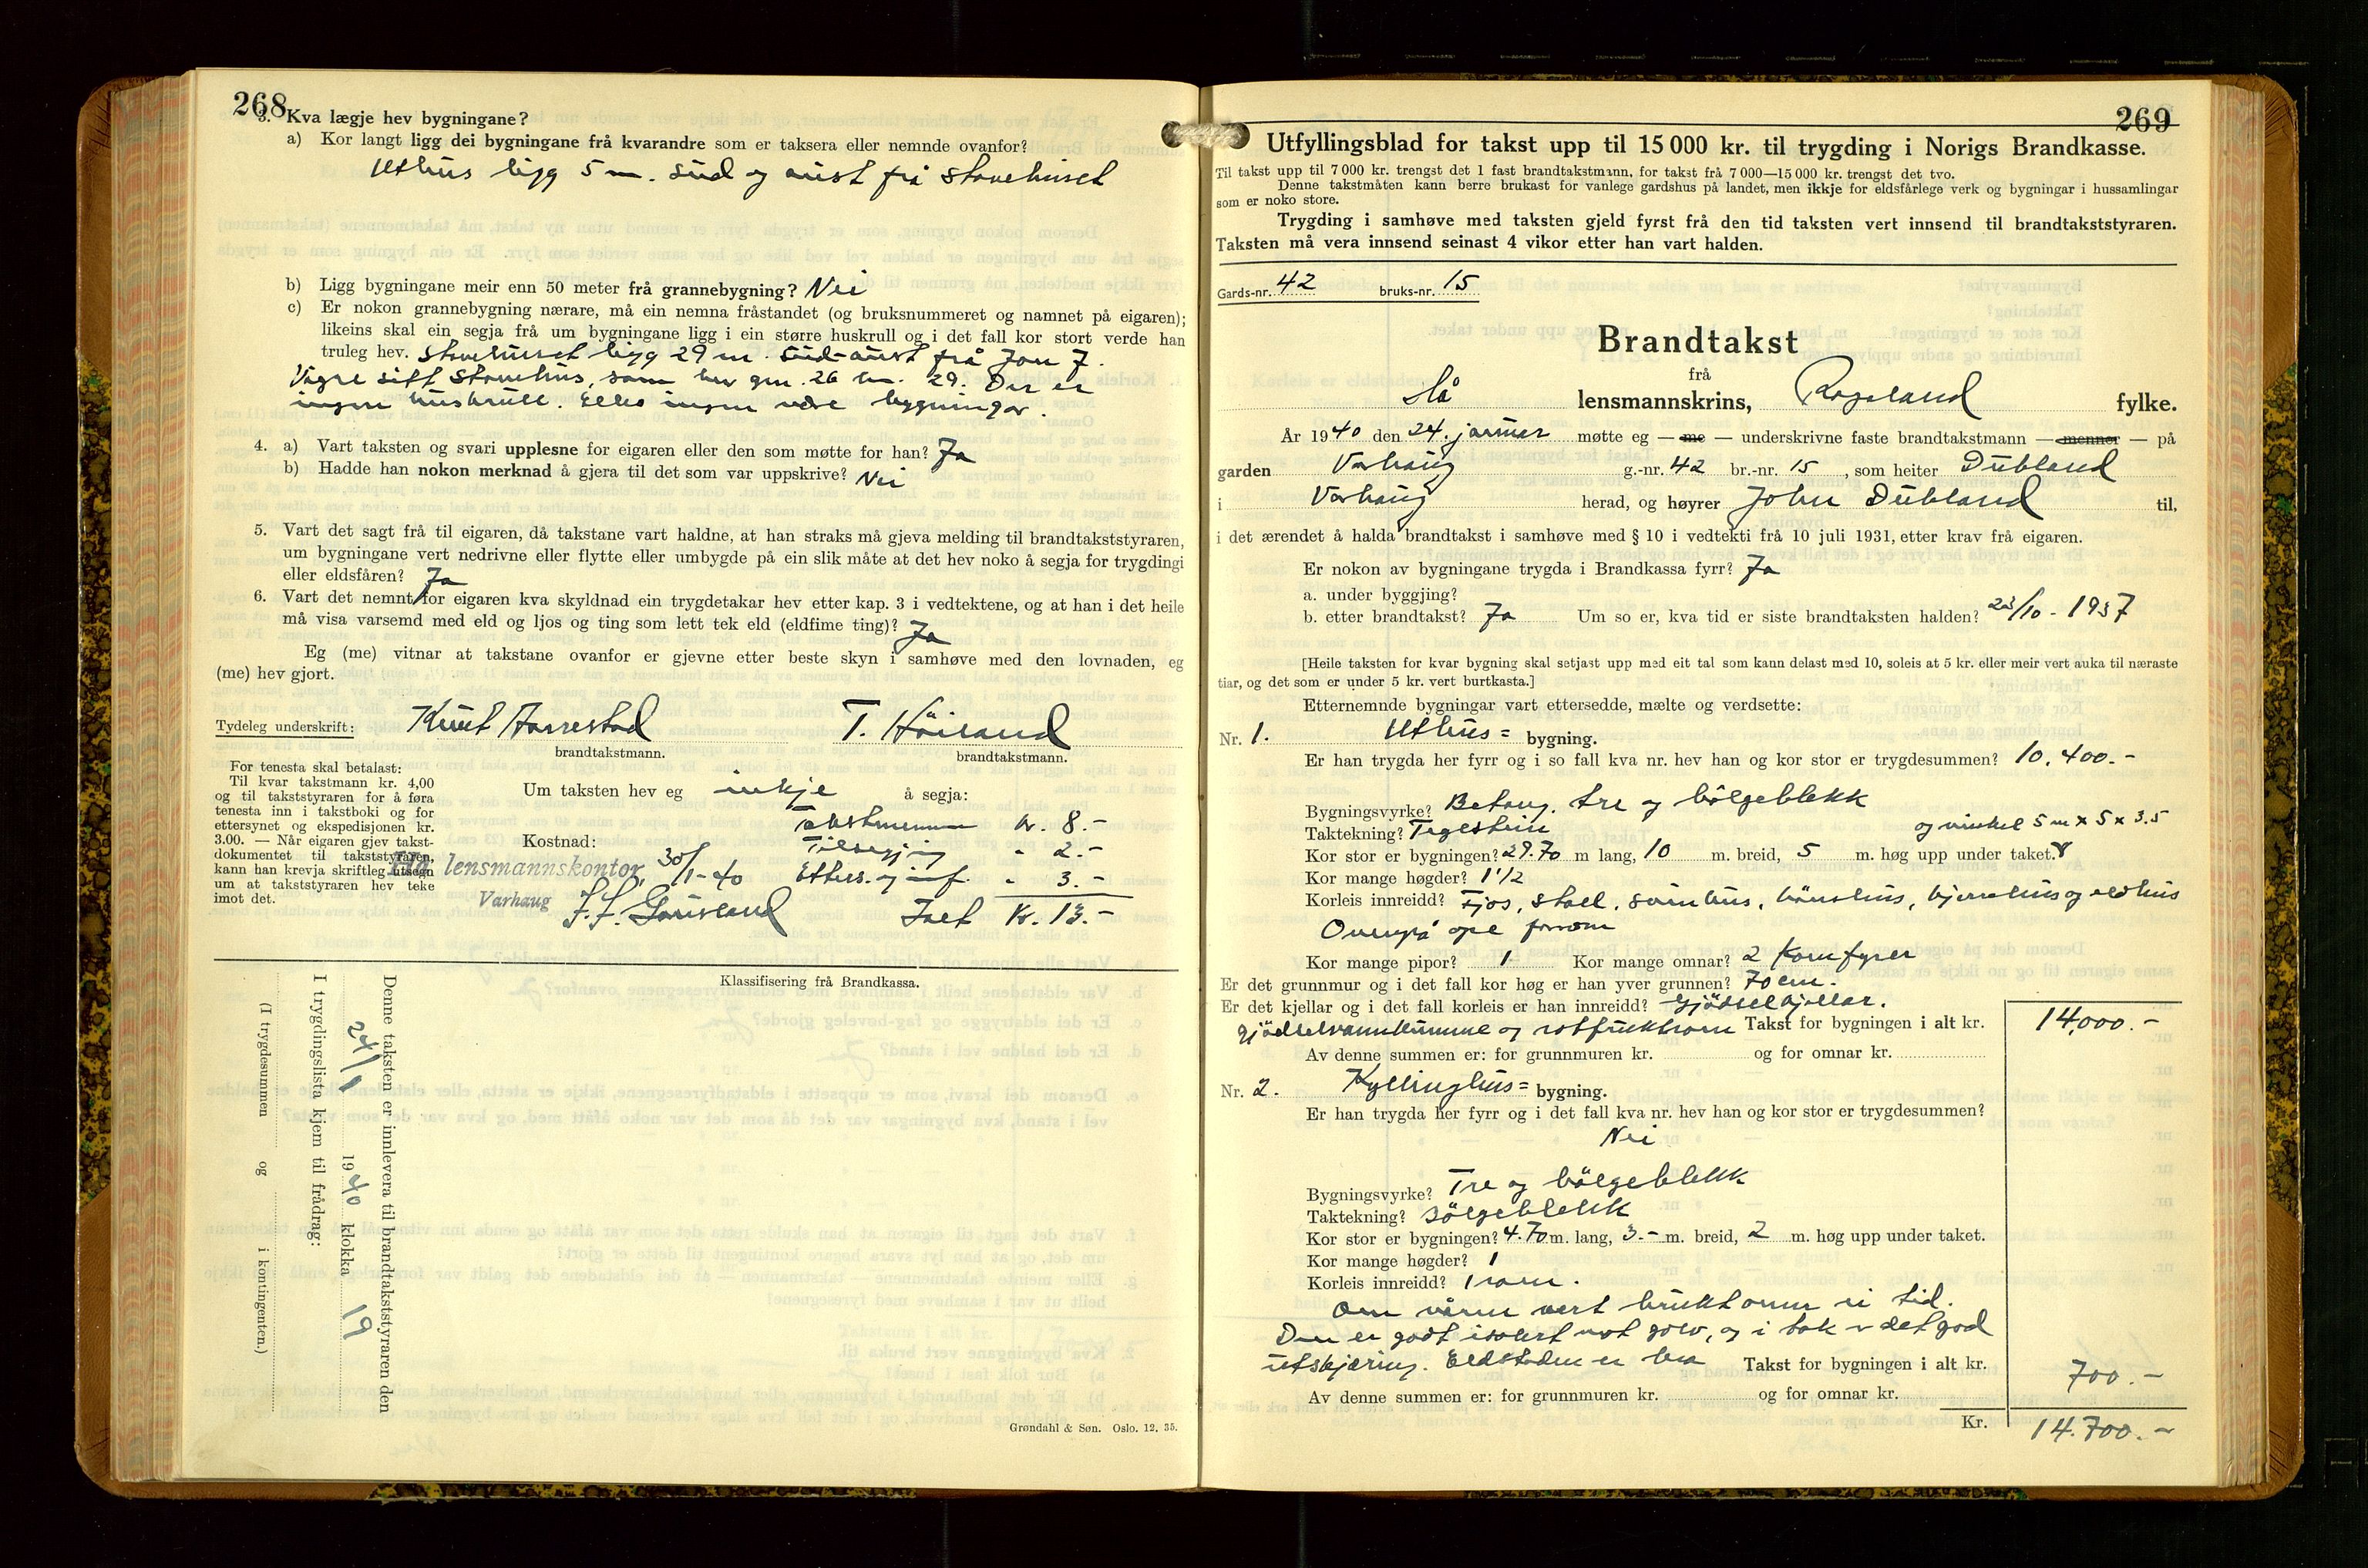 268
3. Kva lægje hev bygningane?
a) Kor langt ligg dei bygningane frå kvarandre som er taksera eller nemnde ovanfor?
Uthus ligg 5 m. sud og aust frå stovehuset
b) Ligg bygningane meir enn 50 meter frå grannebygning? Nei
c) Er nokon grannebygning nærare, må ein nemna fråstandet (og bruksnummeret og namnet på eigaren);
likeins skal ein segja frå um bygningane ligg i ein større huskrull og i det fall kor stort verde han
truleg hev. Stovehuset ligg 29 m. sud-aust frå Jon J.
Vigre sitt stovehus, som hev gnr. 26 bn. 29. Der er
ingen huskrull. Elles ingen nære bygningar.
4. a) Vart taksten og svari upplesne for eigaren eller den som møtte for han? Ja
b) Hadde han nokon merknad å gjera til det som var uppskrive? Nei
5. Vart det sagt frå til eigaren, då takstane vart haldne, at han straks må gjeva melding til brandtakststyraren,
um bygningane vert nedrivne eller flytte eller umbygde på ein slik måte at det hev noko å segja for trygdingi
eller eldsfåren? Ja
6. Vart det nemnt for eigaren kva skyldnad ein trygdetakar hev etter kap. 3 i vedtektene, og at han i det heile
må visa varsemd med eld og ljos og ting som lett tek eld (eldfime ting)? Ja
Eg (me) vitnar at takstane ovanfor er gjevne etter beste skyn i samhøve med den lovnaden, eg
(me) hev gjort.
Tydeleg underskrift: Knut Aarrestad T. Høiland
brandtakstmann. brandtakstmann.
For tenesta skal betalast:
Til kvar takstmann kr. 4,00
og til takststyraren for å føra
tenesta inn i takstboki og for
ettersynet og ekspedisjonen kr.
3.00. — Når eigaren gjev takst-
dokumentet til takststyraren,
kann han krevja skriftleg utsegn
um at takststyraren hev teke
imot det.
Um taksten hev eg inkje å segja:
Kostnad: Takstmenn kr. 8.-
Tilsegjing " 2.-
Hå lensmannskontor, 30/1-40 Etters. og inf. " 3.-
Varhaug Ialt Kr. 13.-
Klassifisering frå Brandkassa.
Denne taksten er innlevera til brandtakststyraren den
24/1 1940 klokka 19
I trygdingslista kjem til frådrag:
(I trygdesummen og i kontingenten.)
Grøndahl & Søn. Oslo. 12. 35.
269
Utfyllingsblad for takst upp til 15 000 kr. til trygding i Norigs Brandkasse.
Til takst upp til 7 000 kr. trengst det 1 fast brandtakstmann, for takst frå 7 000—15 000 kr. trengst det tvo.
Denne takstmåten kann berre brukast for vanlege gardshus på landet, men ikkje for eldsfårlege verk og bygningar i hussamlingar
som er noko store.
Trygding i samhøve med taksten gjeld fyrst frå den tid taksten vert innsend til brandtakststyraren.
Taksten må vera innsend seinast 4 vikor etter han vart halden.
Gards-nr. 42 bruks-nr. 15
Brandtakst
frå
Hå lensmannskrins, Rogaland fylke.
År 1940 den 24. januar møtte eg — me — underskrivne faste brandtakstmann — menner — på
garden Varhaug g.-nr. 42 br.-nr. 15, som heiter Dubland
i Varhaug herad, og høyrer John Dubland til,
i det ærendet å halda brandtakst i samhøve med § 10 i vedtekti frå 10 juli 1931, etter krav frå eigaren.
Er nokon av bygningane trygda i Brandkassa fyrr? Ja
a. under byggjing?
b. etter brandtakst? Ja Um so er, kva tid er siste brandtaksten halden? 23/10-1937
[Heile taksten for kvar bygning skal setjast upp med eit tal som kann delast med 10, soleis at 5 kr. eller meir vert auka til næraste
tiar, og det som er under 5 kr. vert burtkasta.]
Etternemnde bygningar vart ettersedde, mælte og verdsette:
Nr. 1. Uthus= bygning.
Er han trygda her fyrr og i so fall kva nr. hev han og kor stor er trygdesummen? 10.400.-
Bygningsvyrke? Betong, tre og bölgeblekk
Taktekning? Teglstein og vinkel 5 m x 5 x 3.5
Kor stor er bygningen? 29.70 m lang, 10 m. breid, 5 m. høg upp under taket.
Kor mange høgder? 1 1/2
Korleis innreidd? Fjos, stall, svinhus, hönshus, kjerrehus og eldhus
Ovenpå ope forrom
Kor mange pipor? 1 Kor mange omnar? 2 Komfyrer
Er det grunnmur og i det fall kor høg er han yver grunnen? 70 cm.
Er det kjellar og i det fall korleis er han innreidd? Gjödselkjellar.
gjödselvannkumme og rotfruktrom Takst for bygningen i alt kr. 14,000.-
Av denne summen er: for grunnmuren kr. og for omnar kr.
Nr. 2. Kyllinghus= bygning.
Er han trygda her fyrr og i det fall kva nr. hev han og kor stor er trygdesummen?
Nei
Bygningsvyrke? Tre og bölgeblekk
Taktekning? Bölgeblekk
Kor stor er bygningen? 4.70 m. lang, 3.- m. breid, 2 m. høg upp under taket.
Kor mange høgder? 1
Korleis innreidd? 1 rom.
Om våren vert brukt omn ei tid.
Den er godt isolert mot golv, og i tak er det god
utskjæring. Eldstaden er bra Takst for bygningen i alt kr. 700.-
Av denne summen er: for grunnmuren kr. og for omnar kr.
Kr. 14.700.-